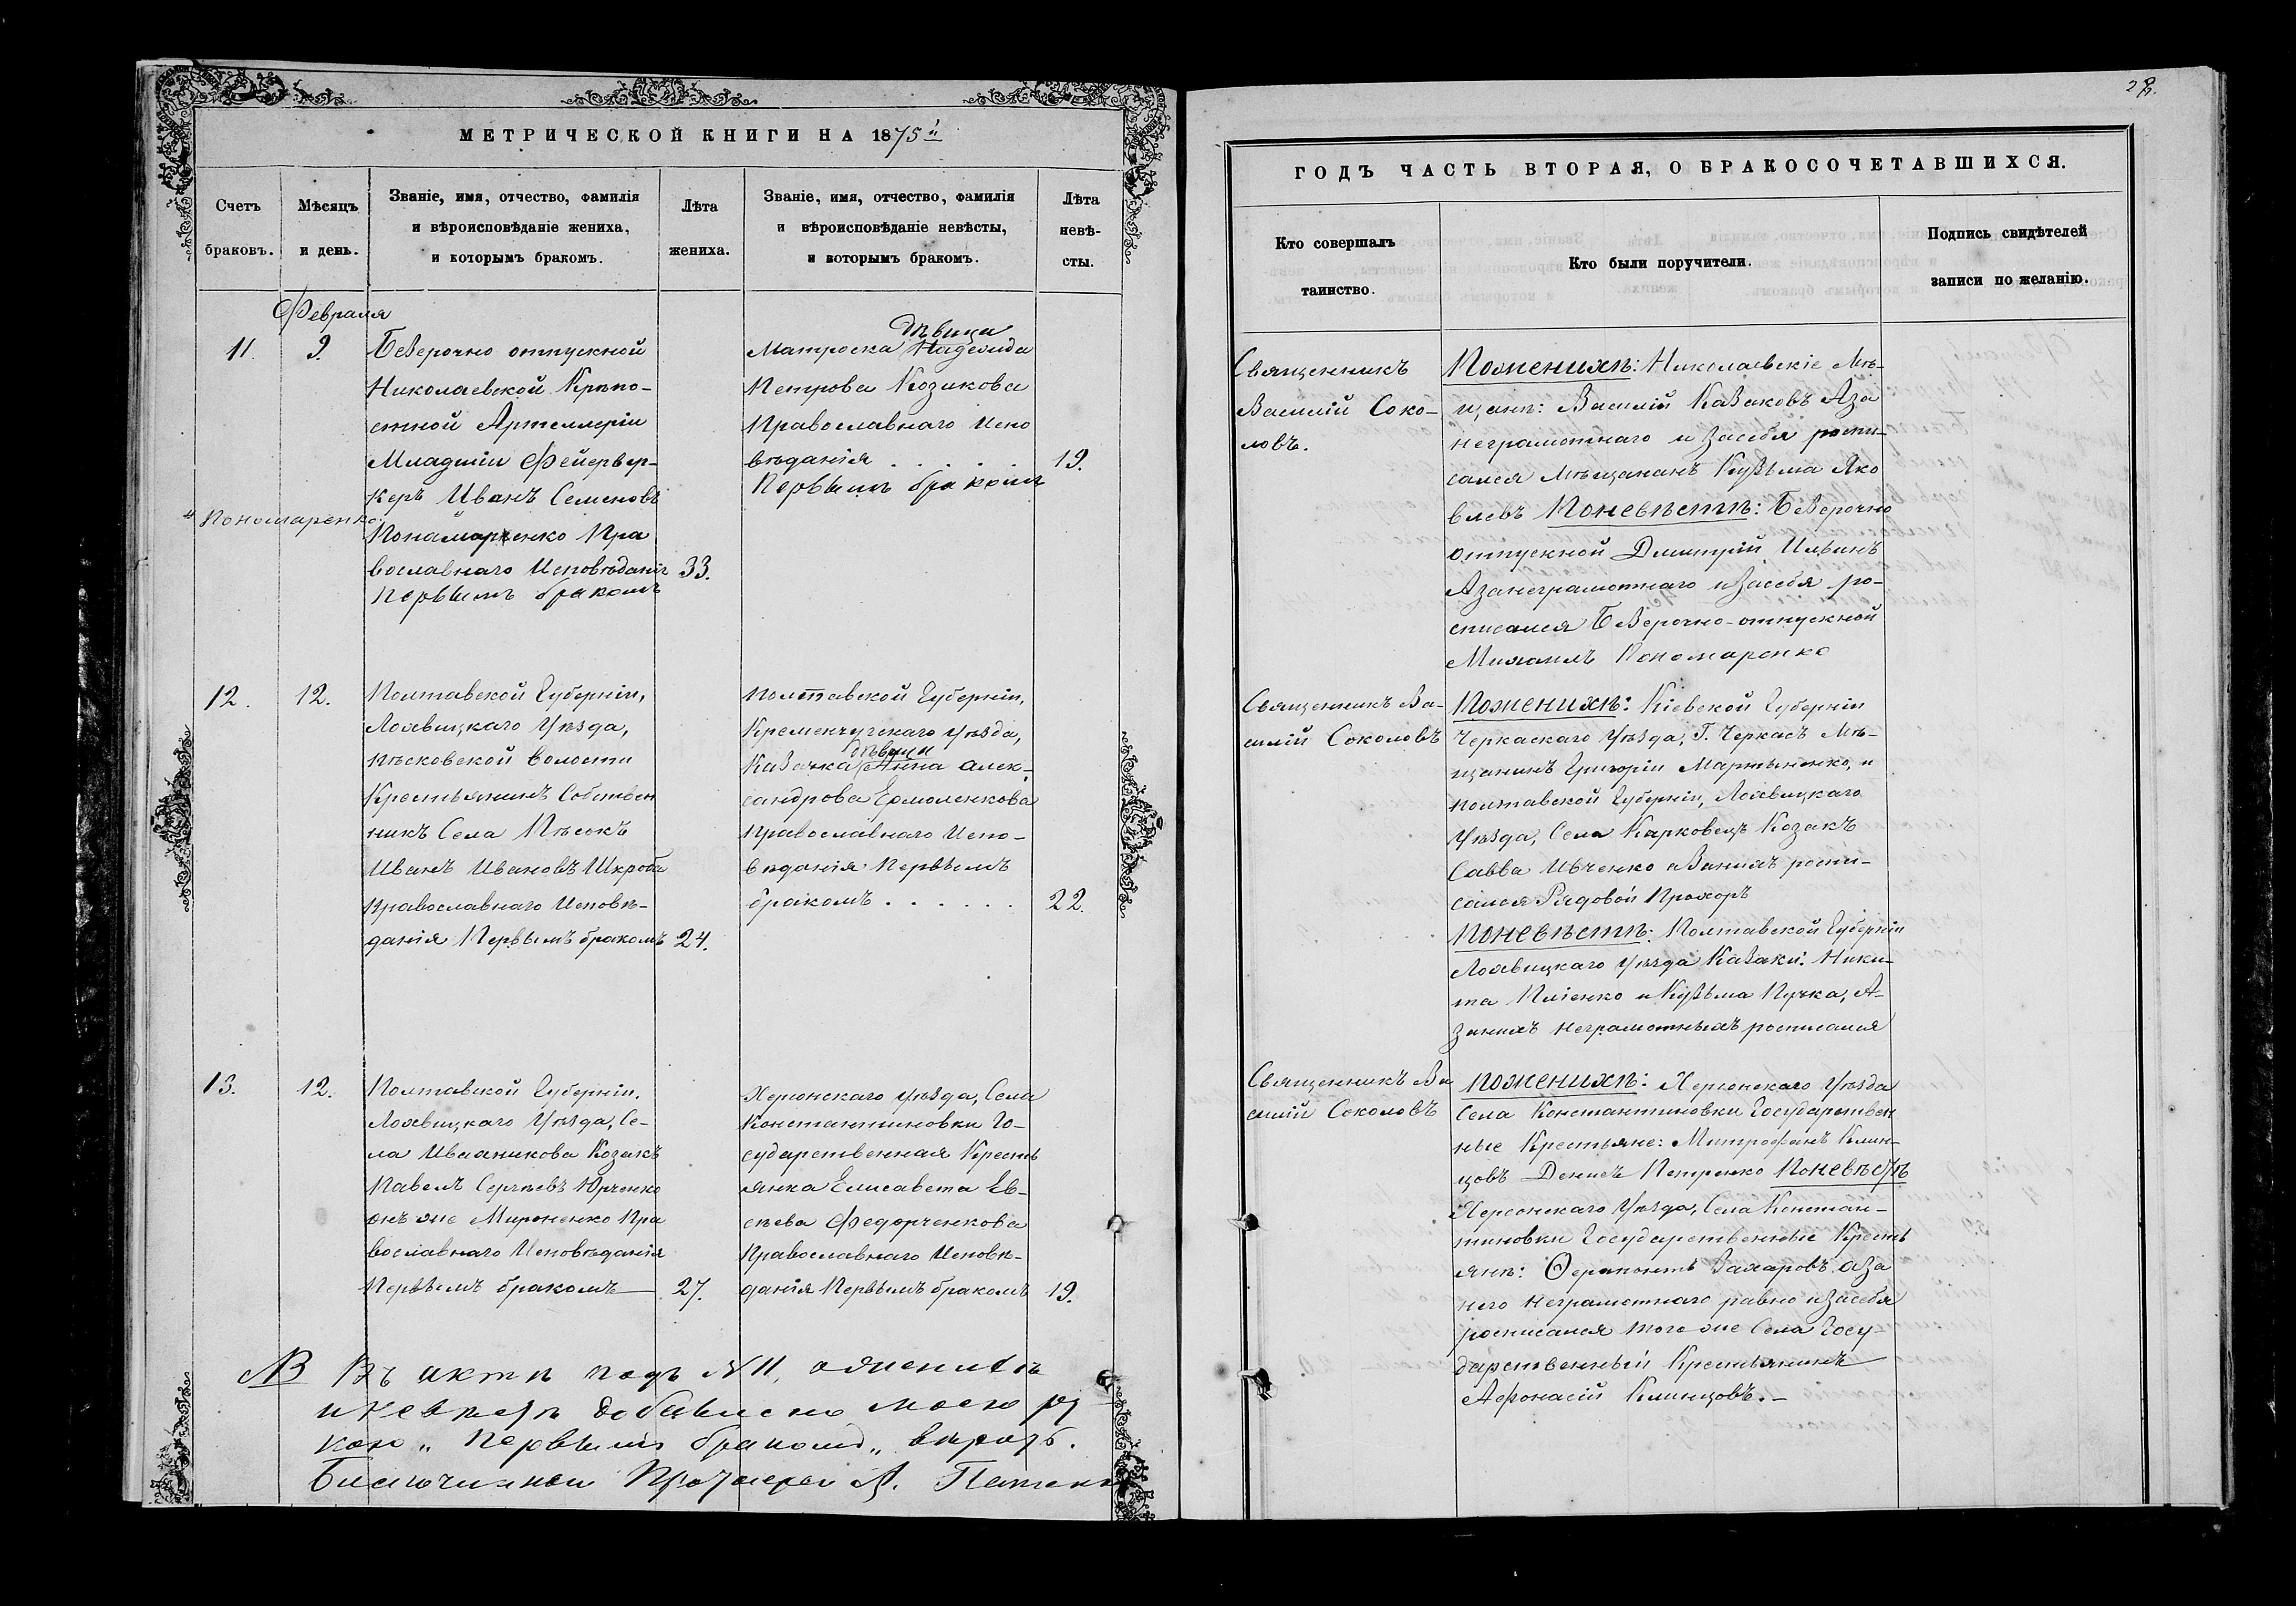 МЕТРИЧЕСКОЙ КНИГИ НА 1875й
Счетъ браковъ.
Мѣсяцъ и день.
Званіе, имя, отчество, фамилія
и вѣроисповѣданіе жениха,
и которымъ бракомъ.
Лѣта жениха.
Званіе, имя, отчество, фамилія
и вѣроисповѣданіе невѣсты,
и которымъ бракомъ.
Лѣта невѣ-
сты.
Февраля
11. 9.
Безсрочно отпускной
Николаевской Крѣпо-
стной Артиллеріи
Младшій Фейервер-
керъ Иванъ Семеновъ
Пономаренко
Пономаренко Пра
вославнаго Исповѣданія 33.
Первымъ бракомъ
Дѣвица
Матроска Надежда
Петрова Козикова
Православнаго Испо
вѣданія . . . . . 19.
Первымъ бракомъ
12. 12.
Полтавской Губерніи,
Лохвицкаго Уѣзда,
Пѣсковской волости
Крестьянинъ Собствен
никъ Села Пѣсокъ
Иванъ Ивановъ Шкроба
Православнаго Исповѣ-
данія Первымъ бракомъ 24.
Полтавской Губерніи,
Кременчугскаго Уѣзда,
Дѣвица
Казачка Анна Алек-
сандрова Ермоленкова
Православнаго Испо-
вѣданія Первымъ
бракомъ . . . . . . 22.
13. 12.
Полтавской Губерніи.
Лохвицкаго Уѣзда, Се-
ла Иваникова Козакъ
Павелъ Сергѣевъ Юрченко
онъ же Мироненко Пра
вославнаго Исповѣданія
Первымъ бракомъ 27.
Херсонскаго Уѣзда, Села
Константиновки Го-
сударственная Кресть
янка Елисавета Ев-
сѣева Федорченкова
Православнаго Исповѣ-
данія Первымъ бракомъ 19.
NB Въ актѣ подъ N 11, о женихѣ
и невѣстѣ добавлено моею ру
кою „Первымъ бракомъ„ вѣрно.
Благочинный Протоіерей
ГОДЪ ЧАСТЬ ВТОРАЯ, О БРАКОСОЧЕТАВШИХСЯ.
Кто совершалъ
таинство.
Кто были поручители.
Подпись свидѣтелей
записи по желанію.
Священникъ
Василій Соко-
ловъ.
Поженихѣ: Николаевскіе Мѣ-
щане: Василій Казаковъ Аза
неграмотнаго и засебя роспи-
сался Мѣщанинъ Кузьма Яко
влевъ Поневѣстѣ: Безсрочно
отпускной Дмитрій Ильинъ
Азанеграмотнаго и засебя ро-
списался Безсрочно-отпускной
Михаилъ Пономаренко
Священникъ Ва-
силій Соколовъ
Поженихѣ: Кіевской Губерніи
Черкаскаго Уѣзда, Г. Черкасъ Мѣ-
щанинъ Григорій Мартыненко, и
Полтавской Губерніи, Лохвицкаго
Уѣзда, Села Харковецъ Козакъ
Савва Ивченко аЗанихъ роспи-
сался Рядовой Прохоръ
Поневѣстѣ: Полтавской Губерніи
Лохвицкаго Уѣзда Казаки: Ники-
та и Кузьма Пучка, А-
Занихъ неграмотныхъ росписался
Священникъ Ва
силій Соколовъ
Поженихѣ: Херсонскаго Уѣзда
Села Константиновки Государствен
ные Крестьяне: Митрофанъ Клин-
цовъ Денисъ Петренко Поневѣстѣ
Херсонскаго Уѣзда, Села Констан-
тиновки Государственные Кресть
яне: Ѳерапонтъ Захаровъ аЗа
него неграмотнаго равно изасебя
росписался того же Села Госу-
дарственный Крестьянинъ
Афонасій Клинцовъ.-